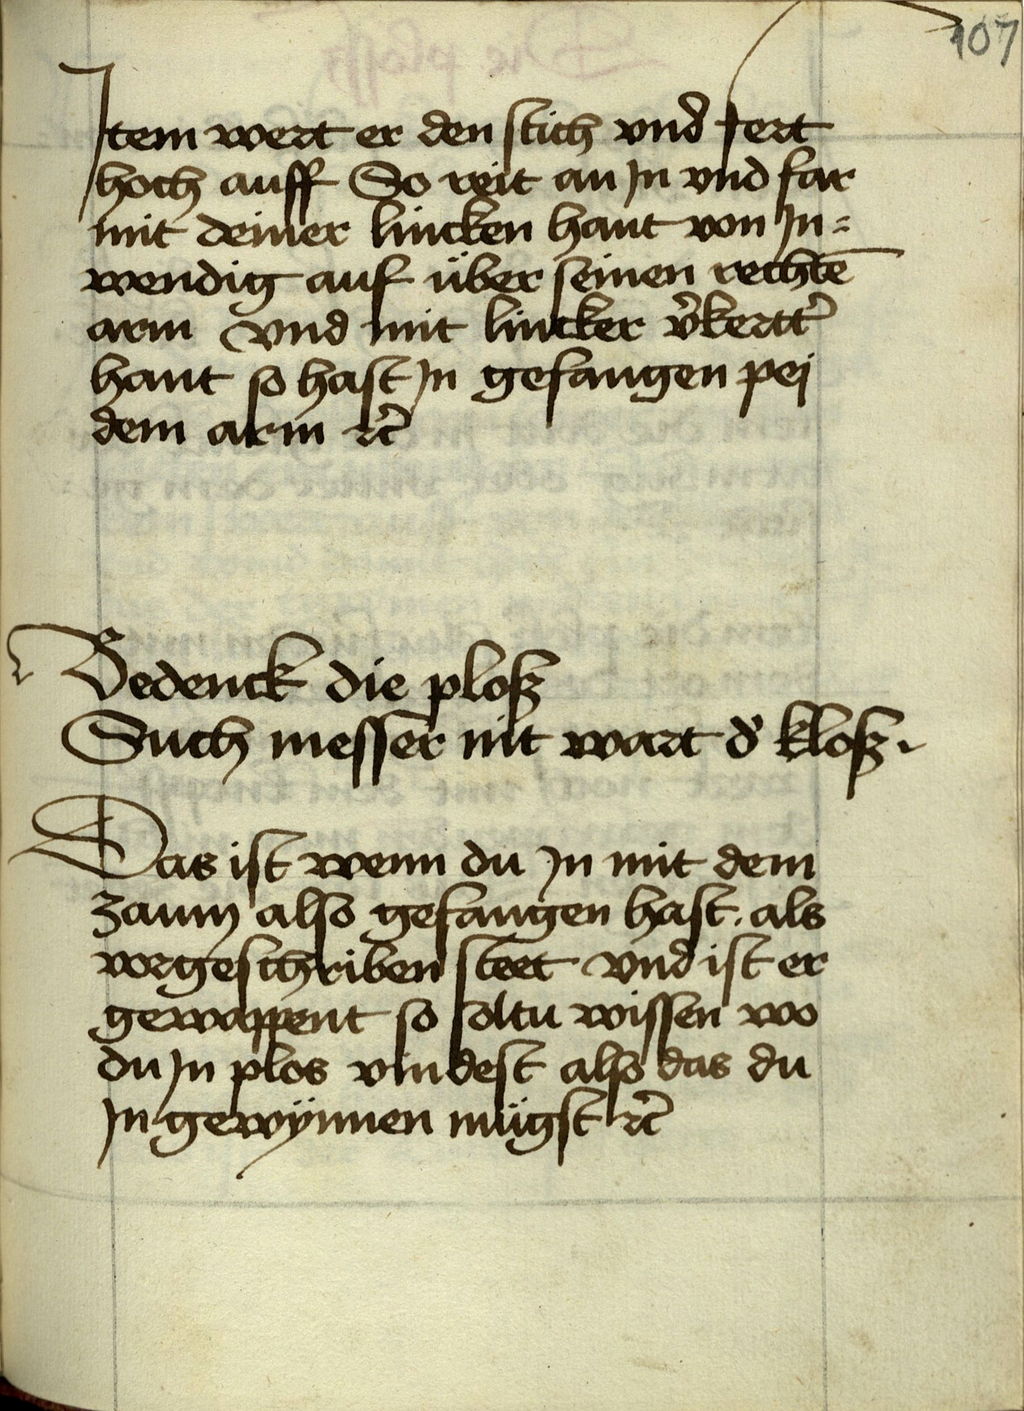 107
Item wert er den stich vnd fert
hoch auff So reit an In vnd far
mit deiner lincken hant von In=
wendig auf über seinen rechtē
arm vnd mit lincker v̉kertt̉
hant so hast In gefangen pej
dem arm ꝛc̉
Bedenck die ploß
Such messer nit wart d̉ kloß.
Das ist wenn du In mit dem
zaum also gefangen hast. als
vorgeschriben steet vnd ist er
gewappent so soltu wissen wo
du In plos vindest also das du
In gewÿnnen mügst ꝛc̉